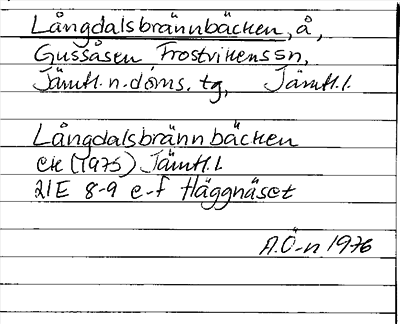 Långdalsbrännbäcken, å,
Gussåsen Frostvikens sn,
Jämtl. n. doms. tg, Jämtl. l.
Långdalsbrännbäcken
ek (1975) Jämtl. l
21E 8-9 e-f Häggnäset
A.Ö-n 1976